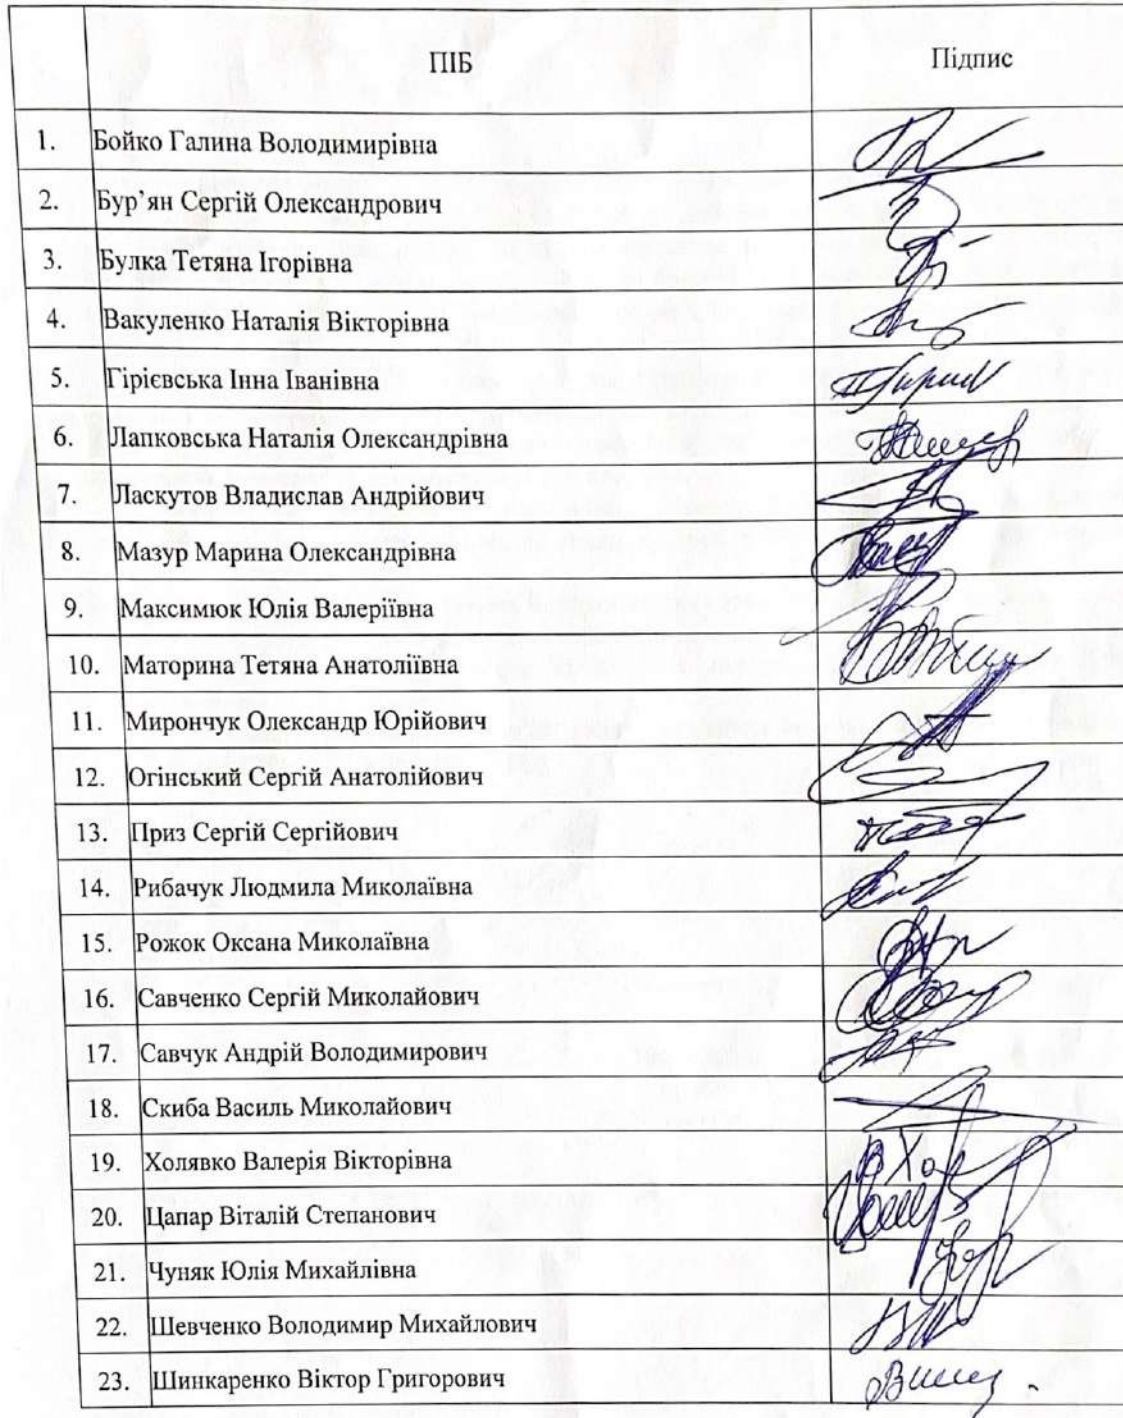 ПІБ Підпис
1. Бойко Галина Володимирівна
2. Бур’ян Сергій Олександрович
3. Булка Тетяна Ігорівна
4. Вакуленко Наталія Вікторівна
5. Гірієвська Інна Іванівна
6. Лапковська Наталія Олександрівна
7. Ласкутов Владислав Андрійович
8. Мазур Марина Олександрівна
9. Максимюк Юлія Валеріївна
10. Маторина Тетяна Анатоліївна
11. Мирончук Олександр Юрійович
12. Огінський Сергій Анатолійович
13. Приз Сергій Сергійович
14. Рибачук Людмила Миколаївна
15. Рожок Оксана Миколаївна
16. Савченко Сергій Миколайович
17. Савчук Андрій Володимирович
18. Скиба Василь Миколайович
19. Холявко Валерія Вікторівна
20. Цапар Віталій Степанович
21. Чуняк Юлія Михайлівна
22. Шевченко Володимир Михайлович
23. Шинкаренко Віктор Григорович